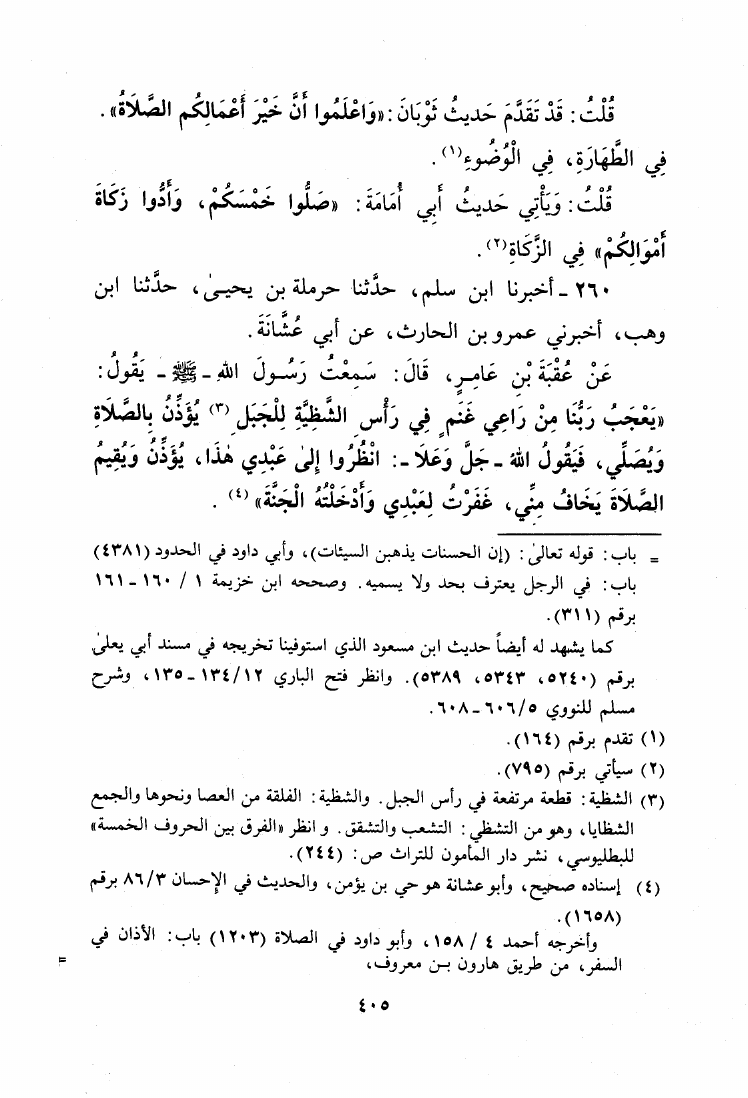 قُلْتُ: قَدْ تَقَدَّمَ حَديثُ ثَوْبَانَ: «وَاعْلَمُوا أَنَّ خَيْرَ أَعْمَالِكُم الصَّلَاةُ».
فِي الطَّهَارَةِ، فِي الْوُضُوءِ(١).
قُلْتُ: وَيَأْتِي حَديثُ أَبِي أُمَامَةَ: «صَلُّوا خَمْسَكُمْ، وَأَدُّوا زَكَاةَ
أَمْوَالِكُمْ» فِي الزَّكَاةِ(٢).
٢٦٠ - أخبرنا ابن سلم، حدَّثنا حرملة بن يحيىٰ، حدَّثنا ابن
وهب، أخبرني عمرو بن الحارث، عن أبي عُشَّانَةَ.
عَنْ عُقْبَةَ بْنِ عَامِرٍ، قَالَ: سَمِعْتُ رَسُولَ اللهِ - ﷺ - يَقُولُ:
«يَعْجَبُ رَبُّنَا مِنْ رَاعِي غَنَمٍ فِي رَأْسِ الشَّظِيَّةِ لِلْجَبَلِ(٣) يُؤَذِّنُ بِالصَّلَاةِ
وَيُصَلِّي، فَيَقُولُ اللهُ - جَلَّ وَعَلَا -: انْظُرُوا إِلىٰ عَبْدِي هٰذَا، يُؤَذِّنُ وَيُقِيمُ
الصَّلَاةَ يَخَافُ مِنِّي، غَفَرْتُ لِعَبْدِي وَأَدْخَلْتُهُ الْجَنَّةَ»(٤).
= باب: قوله تعالىٰ: (إن الحسنات يذهبن السيئات)، وأبي داود في الحدود (٤٣٨١)
باب: في الرجل يعترف بحد ولا يسميه. وصححه ابن خزيمة ١ / ١٦٠ - ١٦١
برقم (٣١١).
كما يشهد له أيضاً حديث ابن مسعود الذي استوفينا تخريجه في مسند أبي يعلىٰ
برقم (٥٢٤٠، ٥٣٤٣، ٥٣٨٩). وانظر فتح الباري ١٢/ ١٣٤ - ١٣٥، وشرح
مسلم للنووي ٥/ ٦٠٦ - ٦٠٨.
(١) تقدم برقم (١٦٤).
(٢) سيأتي برقم (٧٩٥).
(٣) الشظية: قطعة مرتفعة في رأس الجبل. والشظية: الفلقة من العصا ونحوها والجمع
الشظايا، وهو من التشظي: التشعب والتشقق. وانظر «الفرق بين الحروف الخمسة»
للبطليوسي، نشر دار المأمون للتراث ص: (٢٤٤).
(٤) إسناده صحيح، وأبو عشانة هو حي بن يؤمن، والحديث في الإحسان ٣/ ٨٦ برقم
(١٦٥٨).
وأخرجه أحمد ٤ / ١٥٨، وأبو داود في الصلاة (١٢٠٣) باب: الأذان في
السفر، من طريق هارون بن معروف، =
٤٠٥